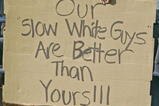 Our
Slow White Guys
Are Better
Than
Yours!!!